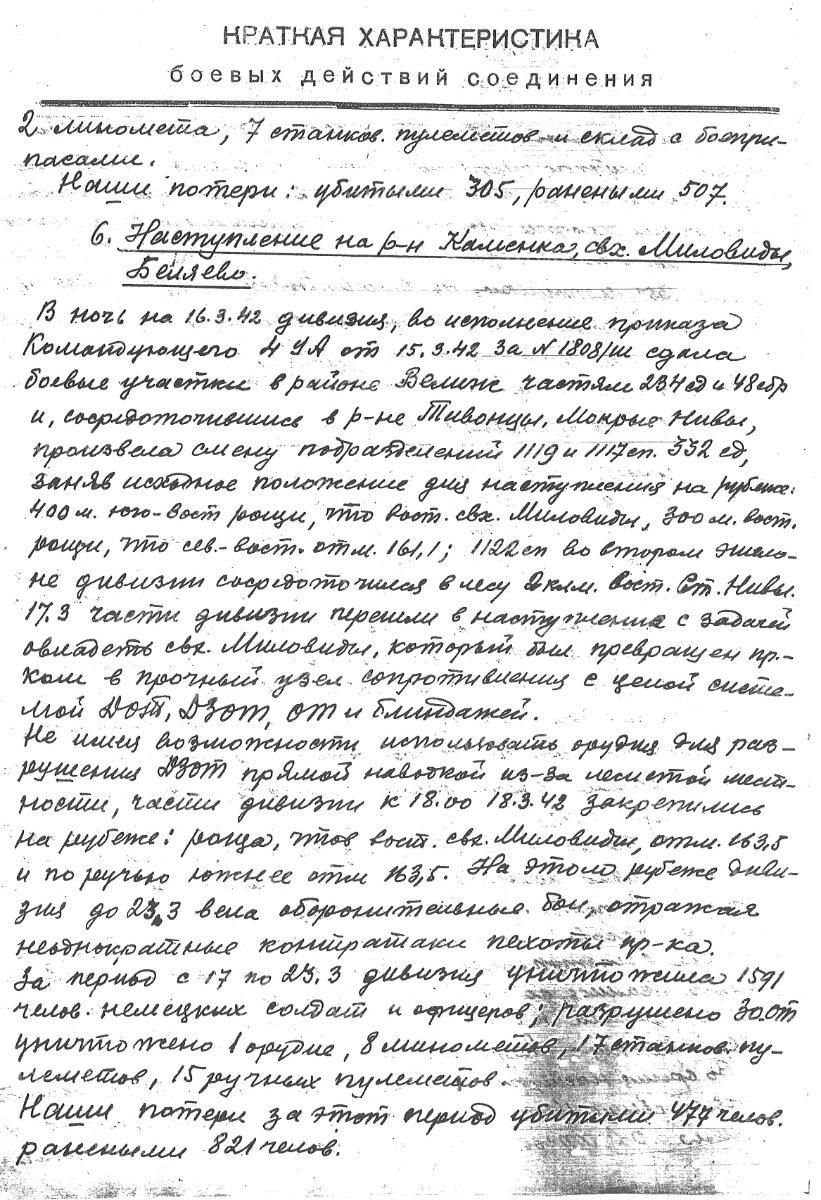 КРАТКАЯ ХАРАКТЕРИСТИКА
боевых действий соединения
2 миномета, 7 станков. пулеметов и склад с боепри-
пасами.
Наши потери: убитыми 305, ранеными 507.
6. Наступление на р-н Каменка, свх. Миловиды,
Беляево.
В ночь на 16.3.42 дивизия, во исполнение приказа
Командующего 4 УА от 15.3.42 за N 1808/ш сдала
боевые участки в районе Велиж частям 234 сд и 48 сбр
и, сосредоточившись в р-не Тивонцы, Мокрые Нивы,
произвела смену подразделений 1119 и 1117 сп. 332 сд,
заняв исходное положение для наступления на рубеже:
400 м. юго-вост рощи, что вост. свх. Миловиды, 300 м. вост.
рощи, что сев.-вост. отм. 161,1; 1122 сп во втором эшело-
не дивизии сосредоточился в лесу 2 клм. вост. Ст. Нивы.
17.3 части дивизии перешли в наступление с задачей
овладеть свх. Миловиды, который был превращен пр-
ком в прочный узел сопротивления с целой систе-
мой ДОТ, ДЗОТ, ОТ и блиндажей.
Не имея возможности использовать орудия для раз-
рушения ДЗОТ прямой наводкой из-за лесистой мест-
ности, части дивизии к 18.00 18.3.42 закрепились
на рубеже: роща, что вост. свх. Миловиды, отм. 163,5
и по ручью южнее отм 163,5. На этом рубеже диви-
зия до 23.3 вела оборонительные бои, отражая
неоднократные контратаки пехоты пр-ка.
За период с 17 по 23.3 дивизия уничтожила 1591
челов. немецких солдат и офицеров; разрушено 30 от
уничтожено 1 орудие, 8 минометов, 17 станков. пу-
леметов, 15 ручных пулеметов.
Наши потери за этот период убитыми 477 челов.
ранеными 821 челов.